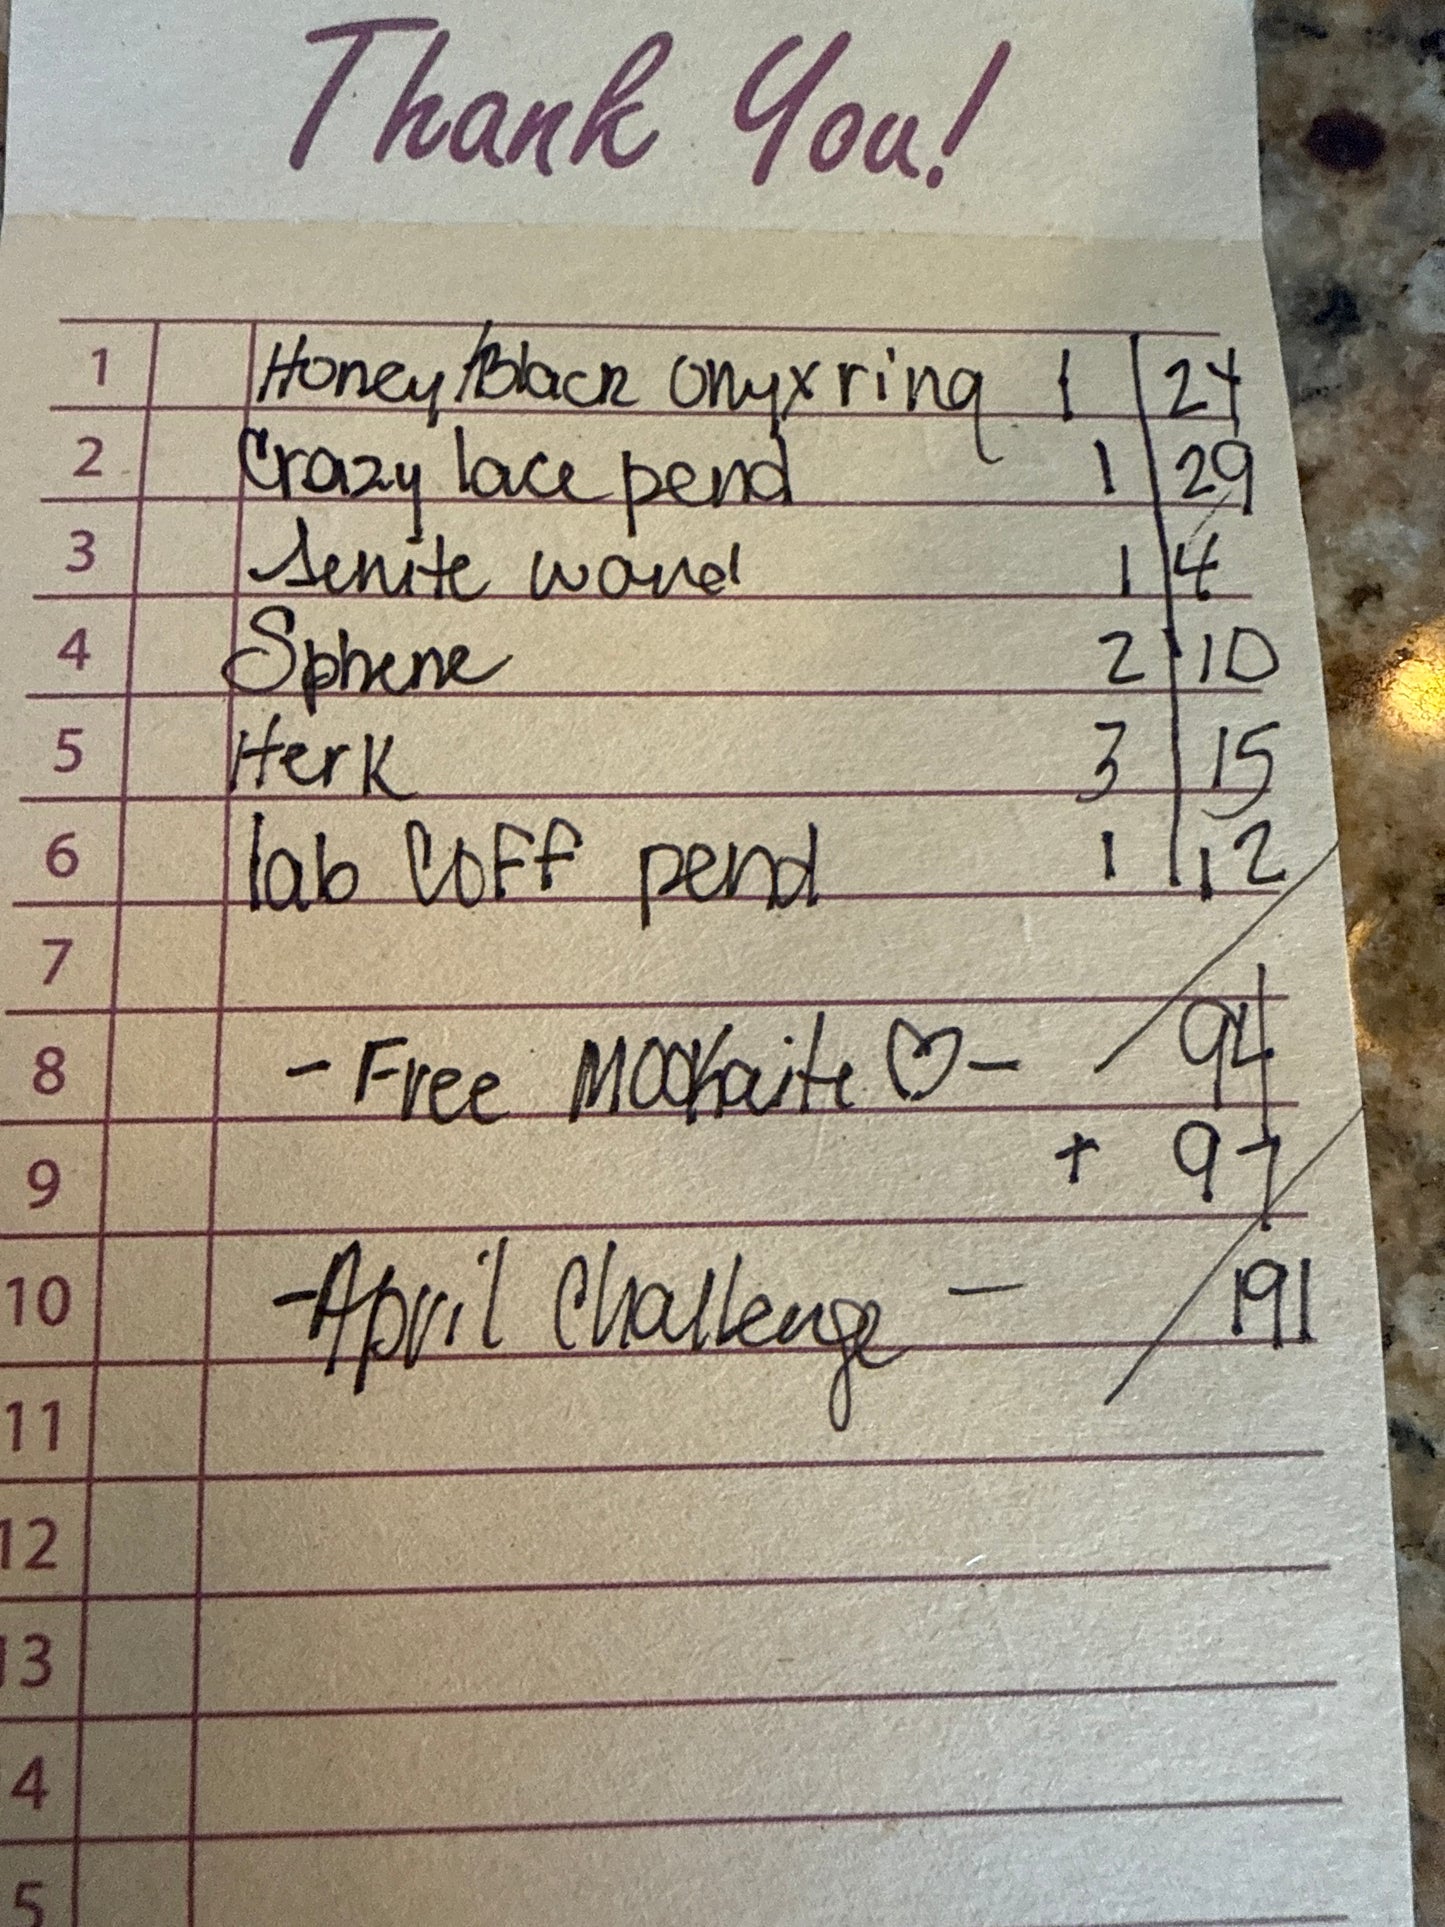 Thank You!
1 Honey/Black Onyx ring 1 24
2 Crazy lace pend 1 29
3 Senite wand 1 4
4 Sphene 2 10
5 Herk 3 15
6 lab Coff pend 1 12
7
8 - Free Mookaite ♡ - 94
9 + 97
10 - April Challenge - 191
11
12
13
4
5